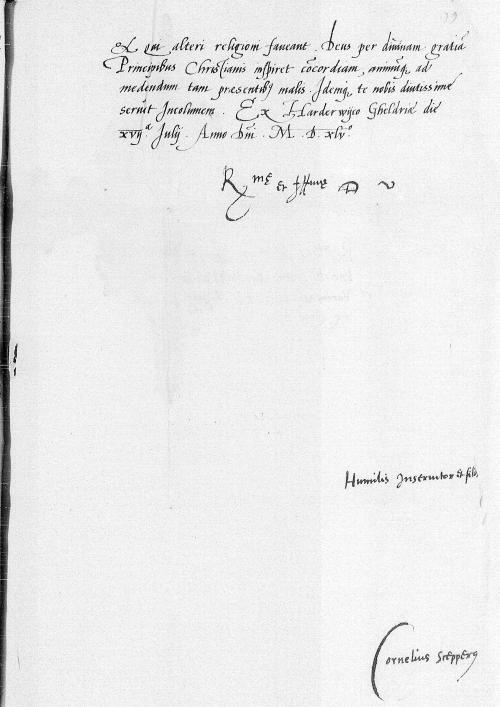 Et qui alteri religioni faveant. Deus per divinam gratiā
Principibus Christianis inspiret cōcordiam, animūq; ad
medendum tam presentibꝫ malis. Idemq; te nobis diutissime
servet Incolumem. Ex Harderwijco Gheldriæ die
xvijᵃ Julij. Anno Dñi. M. D. xlvᵒ
R mę et Illmę D V
Humilis Inservitor et
Cornelius Scepperꝰ